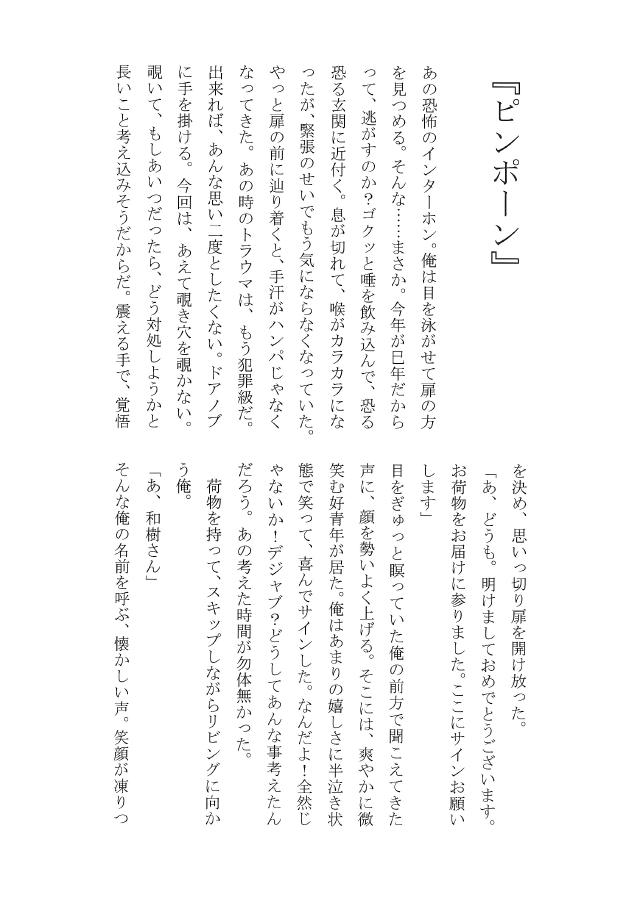 『ピンポーン』
あの恐怖のインターホン。俺は目を泳がせて扉の方
を見つめる。そんな……まさか。今年が巳年だから
って、逃がすのか？ゴクッと唾を飲み込んで、恐る
恐る玄関に近付く。息が切れて、喉がカラカラにな
ったが、緊張のせいでもう気にならなくなっていた。
やっと扉の前に辿り着くと、手汗がハンパじゃなく
なってきた。あの時のトラウマは、もう犯罪級だ。
出来れば、あんな思い二度としたくない。ドアノブ
に手を掛ける。今回は、あえて覗き穴を覗かない。
覗いて、もしあいつだったら、どう対処しようかと
長いこと考え込みそうだからだ。震える手で、覚悟
を決め、思いっ切り扉を開け放った。
「あ、どうも。明けましておめでとうございます。
お荷物をお届けに参りました。ここにサインお願い
します」
目をぎゅっと瞑っていた俺の前方で聞こえてきた
声に、顔を勢いよく上げる。そこには、爽やかに微
笑む好青年が居た。俺はあまりの嬉しさに半泣き状
態で笑って、喜んでサインした。なんだよ！全然じ
ゃないか！デジャブ？どうしてあんな事考えたん
だろう。あの考えた時間が勿体無かった。
荷物を持って、スキップしながらリビングに向か
う俺。
「あ、和樹さん」
そんな俺の名前を呼ぶ、懐かしい声。笑顔が凍りつ